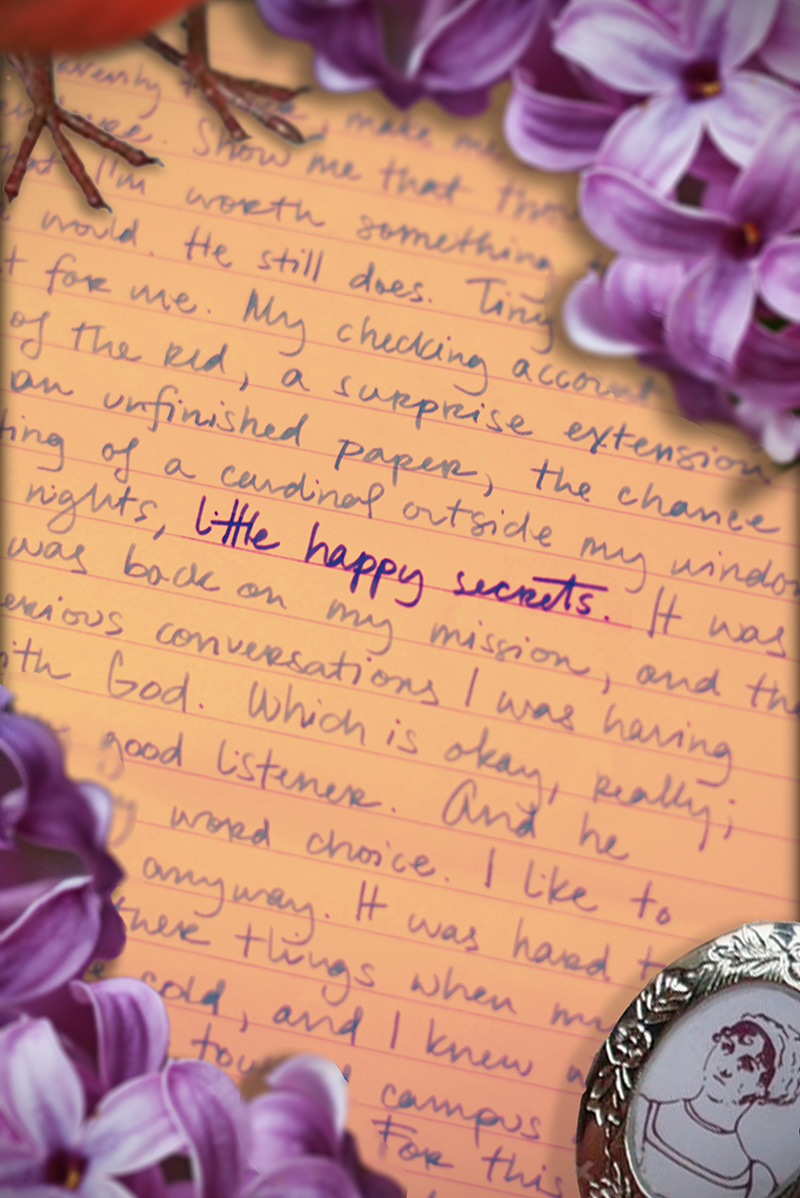 make me
Show me that
I'm worth something
would. He still does. Tiny
for me. My checking account
of the red, a surprise extension
an unfinished paper, the chance
of a cardinal outside my window
nights, little happy secrets. It was
was back on my mission, and the
conversations I was having
God. Which is okay, really;
good listener. And he
word choice. I like to
anyway. It was hard
things when
cold, and I knew
campus
For this